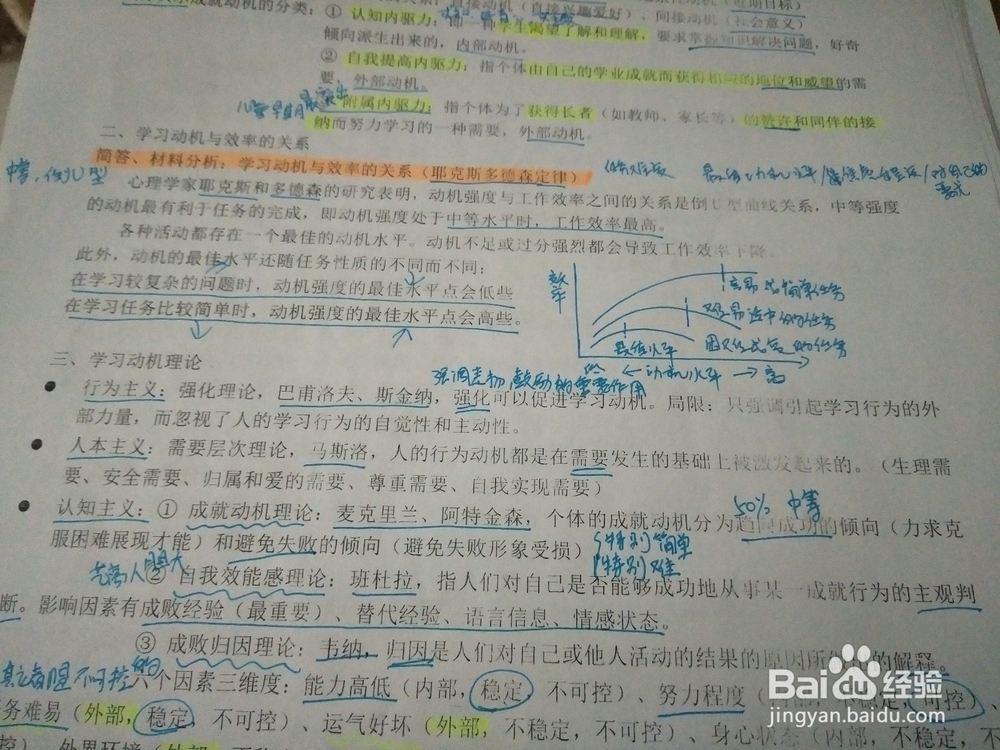 成就动机的分类：① 认知内驱力：
学生渴望了解和理解，要求掌握知识解决问题，好奇
倾向派生出来的，内部动机。
② 自我提高内驱力：指个体由自己的学业成就而获得相应的地位和威望的需
要，外部动机。
儿童早期最突出
附属内驱力：指个体为了获得长者（如教师、家长等）的赞许和同伴的接
纳而努力学习的一种需要，外部动机。
二、学习动机与效率的关系
简答、材料分析：学习动机与效率的关系（耶克斯多德森定律）
中等，倒U型
心理学家耶克斯和多德森的研究表明，动机强度与工作效率之间的关系是倒U型曲线关系，中等强度
的动机最有利于任务的完成，即动机强度处于中等水平时，工作效率最高。
各种活动都存在一个最佳的动机水平。动机不足或过分强烈都会导致工作效率下降。
此外，动机的最佳水平还随任务性质的不同而不同：
在学习较复杂的问题时，动机强度的最佳水平点会低些
在学习任务比较简单时，动机强度的最佳水平点会高些。
效率
容易或简单任务
难易适中的任务
最佳水平
困难或复杂的任务
低 ← 动机水平 → 高
三、学习动机理论
强调表扬鼓励的重要作用
● 行为主义：强化理论，巴甫洛夫、斯金纳，强化可以促进学习动机。局限：只强调引起学习行为的外
部力量，而忽视了人的学习行为的自觉性和主动性。
● 人本主义：需要层次理论，马斯洛，人的行为动机都是在需要发生的基础上被激发起来的。（生理需
要、安全需要、归属和爱的需要、尊重需要、自我实现需要）
50% 中等
● 认知主义：① 成就动机理论：麦克里兰、阿特金森，个体的成就动机分为趋向成功的倾向（力求克
服困难展现才能）和避免失败的倾向（避免失败形象受损）
特别简单
特别难
艺高人胆大
② 自我效能感理论：班杜拉，指人们对自己是否能够成功地从事某一成就行为的主观判
断。影响因素有成败经验（最重要）、替代经验、语言信息、情感状态。
③ 成败归因理论：韦纳，归因是人们对自己或他人活动的结果的原因所作的解释。
不可控的
六个因素三维度：能力高低（内部，稳定，不可控）、努力程度（可控）、
务难易（外部，稳定，不可控）、运气好坏（外部，不稳定，不可控）、身心状态（内部，不稳定，不
可控）、外界环境
Baidu 经验
jingyan.baidu.com